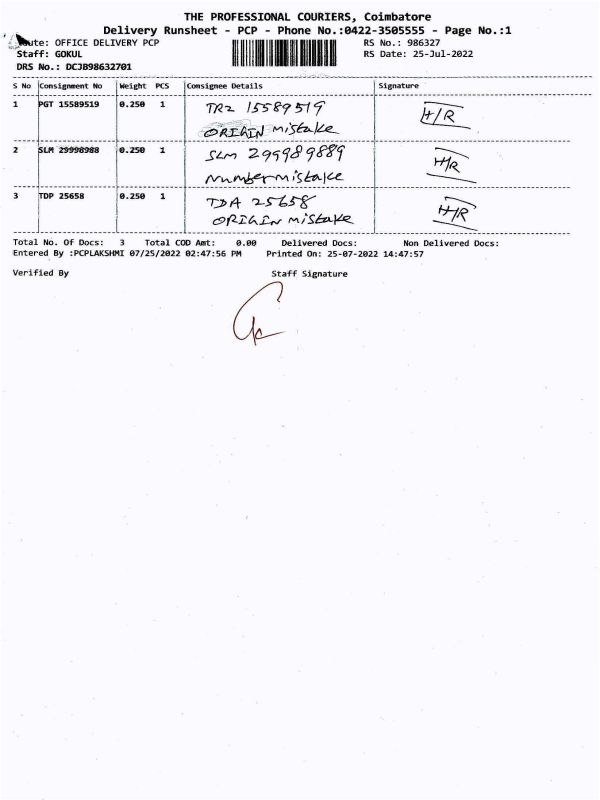 THE PROFESSIONAL COURIERS, Coimbatore
Delivery Runsheet - PCP - Phone No.:0422-3505555 - Page No.:1
Route: OFFICE DELIVERY PCP RS No.: 986327
Staff: GOKUL RS Date: 25-Jul-2022
DRS No.: DCJB98632701
S No Consignment No Weight PCS Consignee Details Signature
1 PGT 15589519 0.250 1 TRZ 15589519 H/R
ORIGIN mistake
2 SLM 29998988 0.250 1 SLM 299989889 H/R
Number mistake
3 TDP 25658 0.250 1 TDA 25658 H/R
ORIGIN mistake
Total No. Of Docs: 3 Total COD Amt: 0.00 Delivered Docs: Non Delivered Docs:
Entered By :PCPLAKSHMI 07/25/2022 02:47:56 PM Printed On: 25-07-2022 14:47:57
Verified By Staff Signature